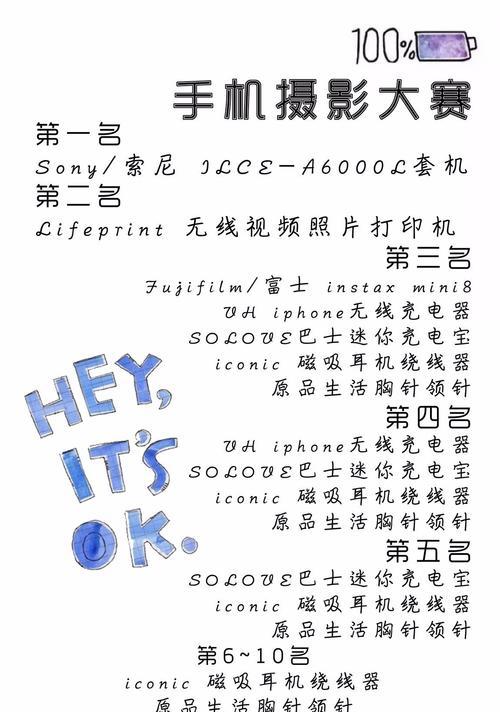 100%
手机摄影大赛
第一名
Sony/索尼 ILCE-A6000L套机
第二名
Lifeprint 无线视频照片打印机
第三名
Fujifilm/富士 instax mini8
VH iphone无线充电器
SOLOVE巴士迷你充电宝
iconic 磁吸耳机绕线器
原品生活胸针领针
HEY,
IT'S
OK.
第四名
VH iphone无线充电器
SOLOVE巴士迷你充电宝
iconic 磁吸耳机绕线器
原品生活胸针领针
第五名
SOLOVE巴士迷你充电宝
iconic 磁吸耳机绕线器
原品生活胸针领针
第6~10名
iconic 磁吸耳机绕线器
原品生活胸针领针